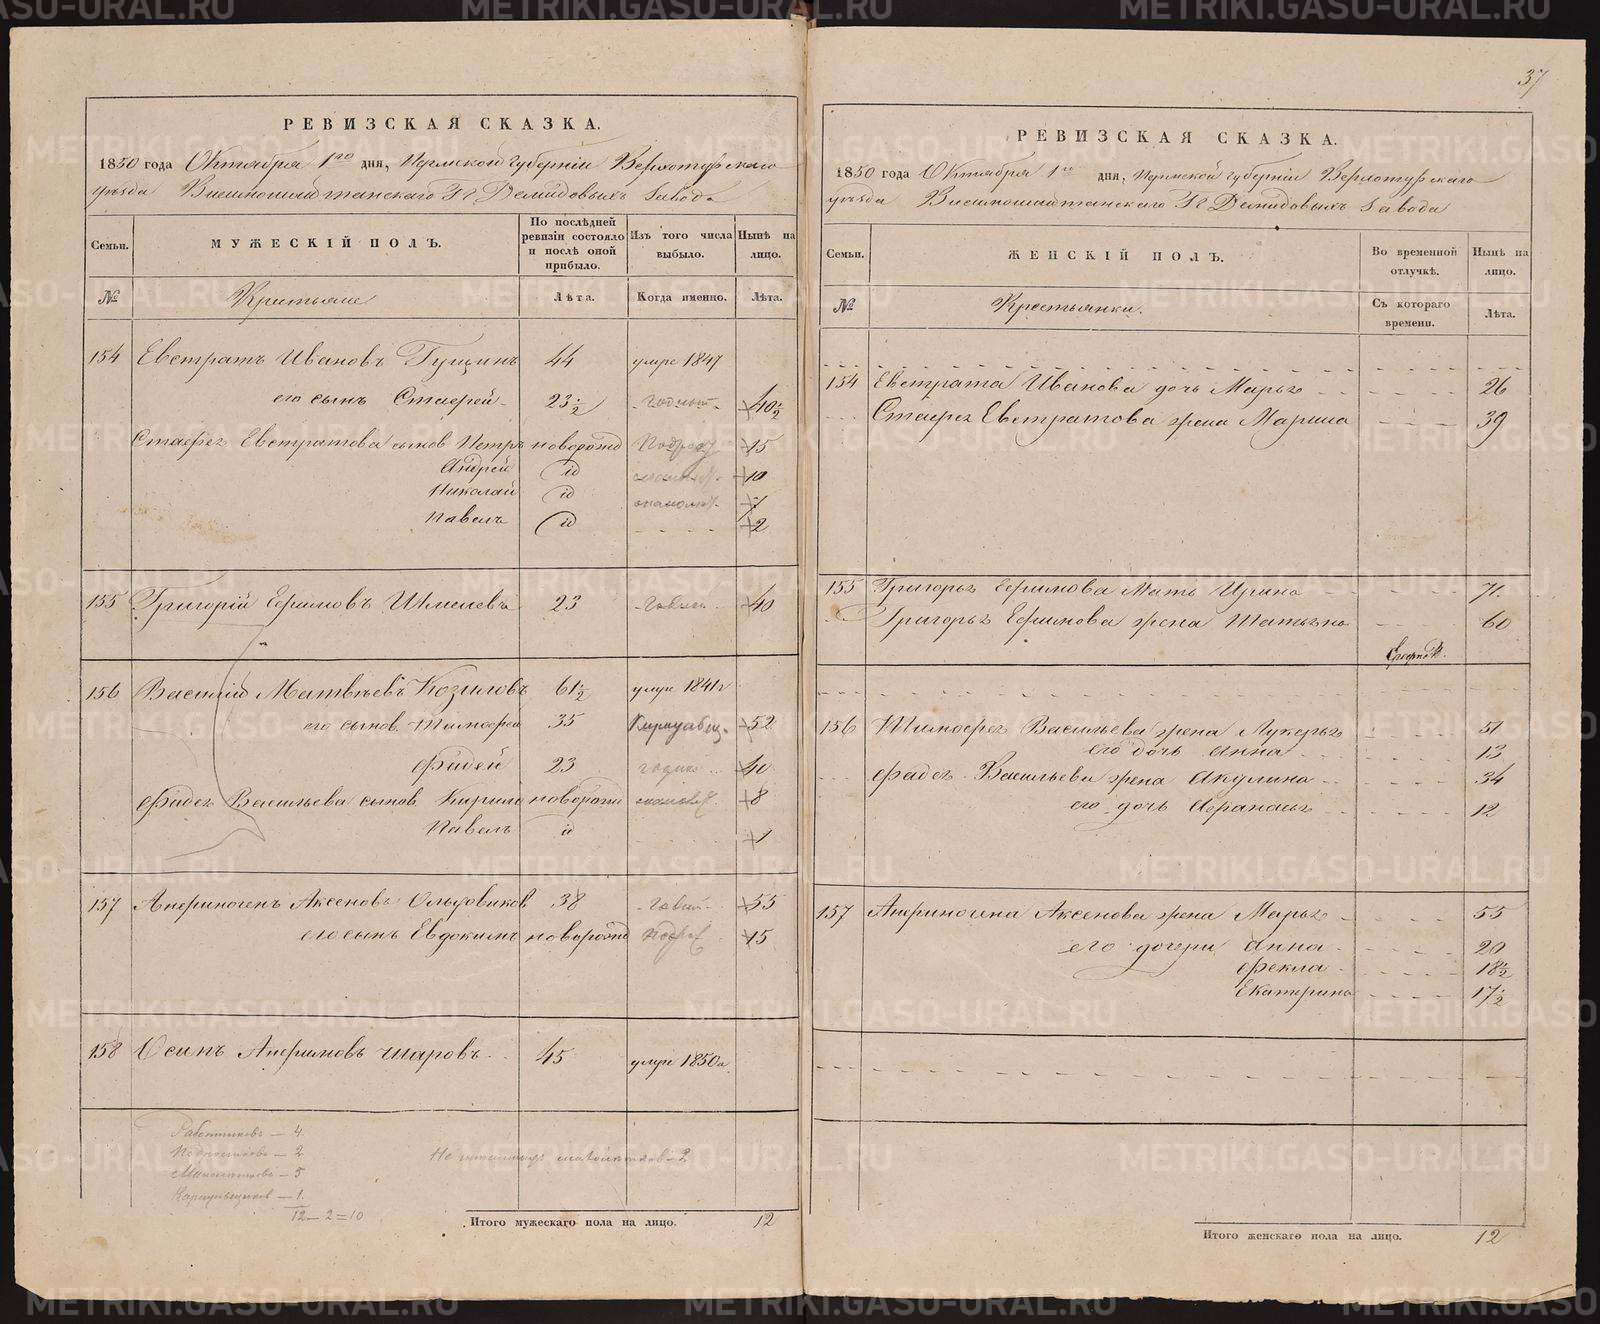 37
РЕВИЗСКАЯ СКАЗКА.
1850 года Октября 1го дня, Пермской губерніи Верхотурскаго
уѣзда Висимошайтанскаго Гг Демидовыхъ Завода
Семьи.
МУЖЕСКІЙ ПОЛЪ.
По послѣдней ревизіи состояло и послѣ оной прибыло.
Изъ того числа выбыло.
Нынѣ на лицо.
№
Крестьяне
Лѣта.
Когда именно.
Лѣта.
154 Евстратъ Ивановъ Гущинъ 44 умре 1847
его сынъ Стаѳей 23½ годный 40½
Стаѳея Евстратова сыновья Петръ новорожд 15
Андрей id 10
Николай id 7
Павелъ id 2
155 Григорій Ефимовъ Шмелевъ 23 40
156 Василій Матвѣевъ Козиловъ 61½ умре 1841г
его сынов. Тимоѳей 35 52
Фадей 23 40
Фадея Васильева сынов. Кирило новорожд 8
Павелъ id 1
157 Аѳиногенъ Аксеновъ Ольховиковъ 38 55
его сынъ Евдокимъ новорожд 15
158 Осипъ Ивановъ Шаровъ 45 умре 1850г.
Работниковъ — 4.
Подростковъ — 2
Малолѣтковъ — 5
Караульщиковъ — 1.
12 — 2 = 10
малолѣтковъ — 2
Итого мужескаго пола на лицо. 12
РЕВИЗСКАЯ СКАЗКА.
1850 года Октября 1го дня, Пермской губерніи Верхотурскаго
уѣзда Висимошайтанскаго Гг Демидовыхъ Завода
Семьи.
ЖЕНСКІЙ ПОЛЪ.
Во временной отлучкѣ.
Нынѣ на лицо.
№
Крестьянки.
Съ котораго времени.
Лѣта.
154 Евстрата Иванова дочь Марья 26
Стаѳея Евстратова жена Марина 39
155 Григорья Ефимова мать Ирина 71.
Григорья Ефимова жена Татьяна 60
156 Тимоѳея Васильева жена Лукерья 51
его дочь Анна 13
Фадея Васильева жена Акулина 34
его дочь Афанасья 12
157 Аѳиногена Аксенова жена Марья 55
его дочери Анна 20
Фекла 18½
Екатерина 17½
Итого женскаго пола на лицо. 12
METRIKI.GASO-URAL.RU